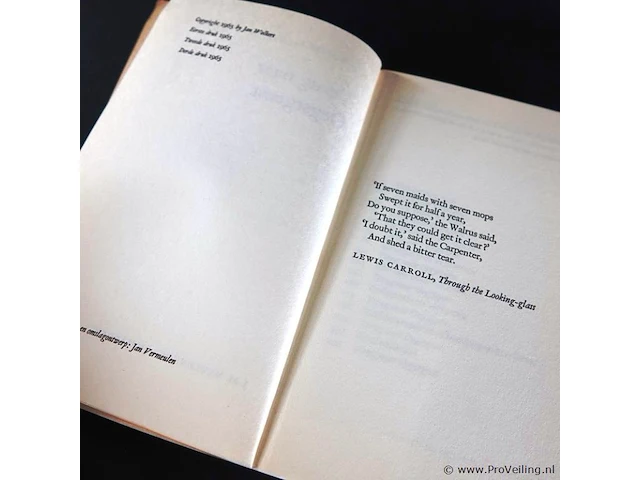 Copyright 1965 by Jan Wolkers
Eerste druk 1965
Tweede druk 1965
Derde druk 1965
en omslagontwerp: Jan Vermeulen
'If seven maids with seven mops
Swept it for half a year,
Do you suppose,' the Walrus said,
'That they could get it clear?'
'I doubt it,' said the Carpenter,
And shed a bitter tear.
LEWIS CARROLL, Through the Looking-glass
© www.ProVeiling.nl